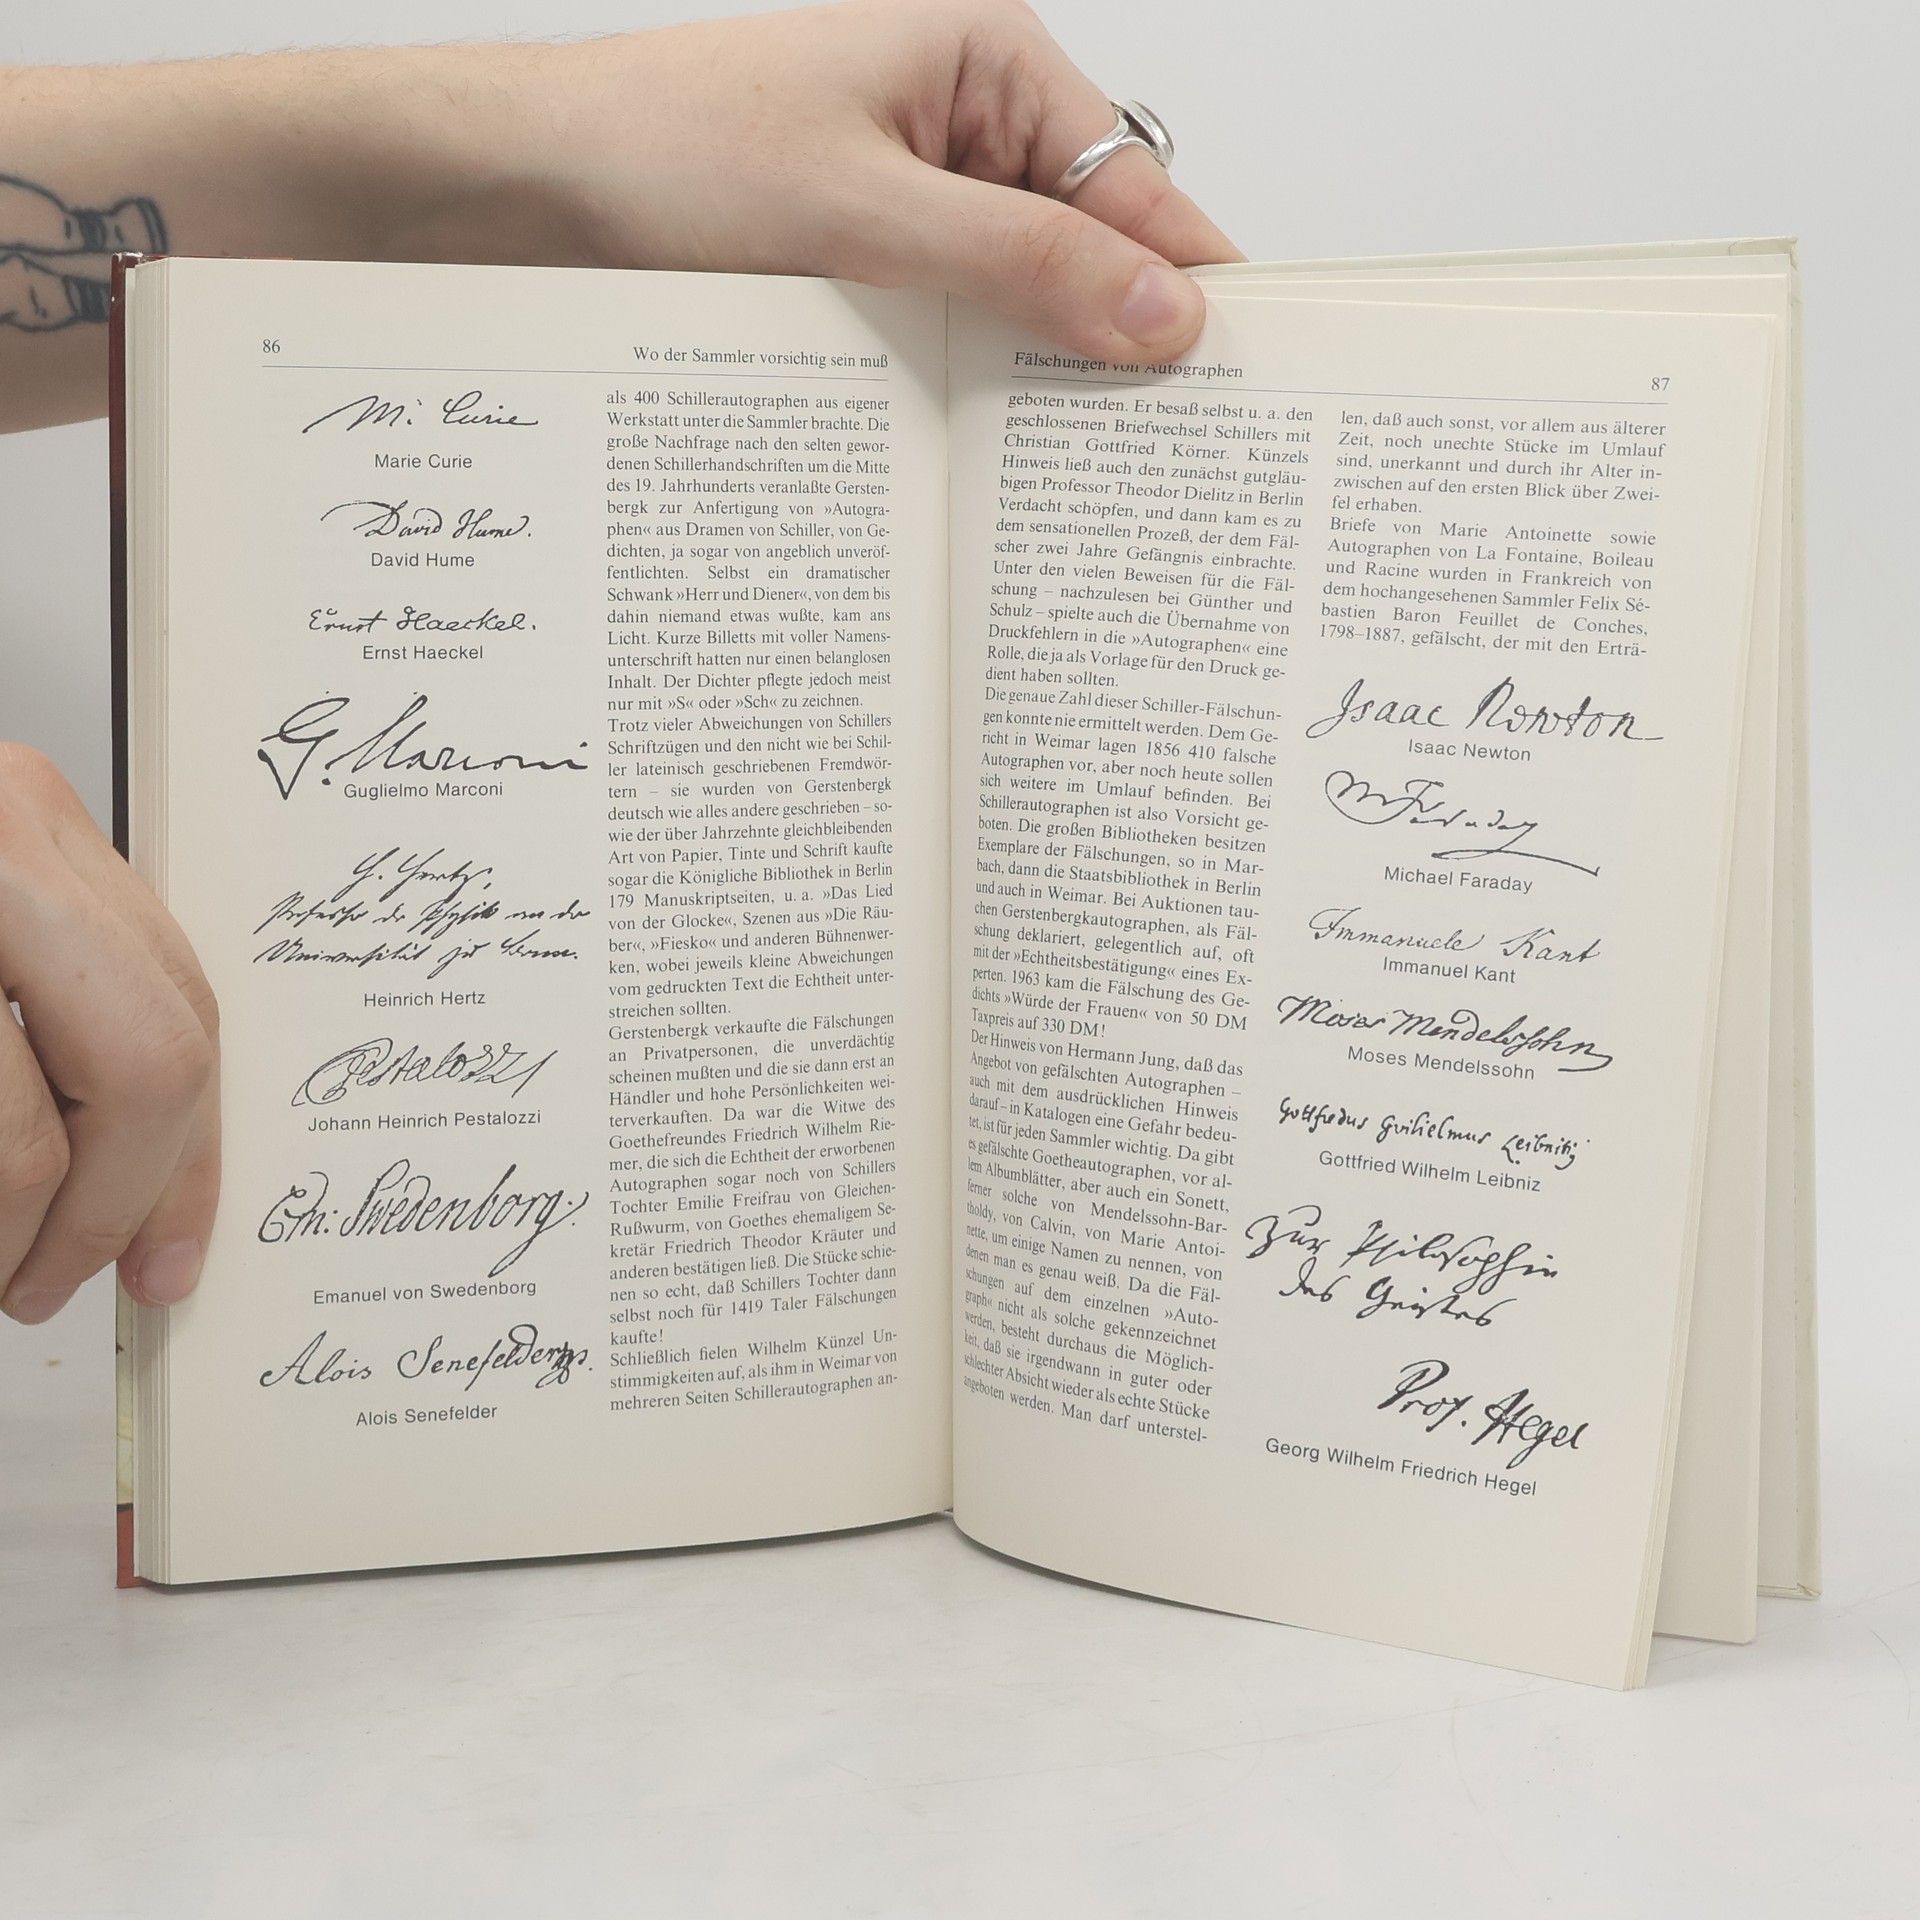 86
Wo der Sammler vorsichtig sein muß
M. Curie
Marie Curie
David Hume.
David Hume
Ernst Haeckel.
Ernst Haeckel
G. Marconi
Guglielmo Marconi
H. Hertz,
Professor der Physik an der
Universität zu Bonn.
Heinrich Hertz
Pestalozzi
Johann Heinrich Pestalozzi
Em: Swedenborg.
Emanuel von Swedenborg
Alois Senefelder
Alois Senefelder
als 400 Schillerautographen aus eigener
Werkstatt unter die Sammler brachte. Die
große Nachfrage nach den selten gewor-
denen Schillerhandschriften um die Mitte
des 19. Jahrhunderts veranlaßte Gersten-
bergk zur Anfertigung von »Autogra-
phen« aus Dramen von Schiller, von Ge-
dichten, ja sogar von angeblich unveröf-
fentlichten. Selbst ein dramatischer
Schwank »Herr und Diener«, von dem bis
dahin niemand etwas wußte, kam ans
Licht. Kurze Billetts mit voller Namens-
unterschrift hatten nur einen belanglosen
Inhalt. Der Dichter pflegte jedoch meist
nur mit »S« oder »Sch« zu zeichnen.
Trotz vieler Abweichungen von Schillers
Schriftzügen und den nicht wie bei Schil-
ler lateinisch geschriebenen Fremdwör-
tern – sie wurden von Gerstenbergk
deutsch wie alles andere geschrieben – so-
wie der über Jahrzehnte gleichbleibenden
Art von Papier, Tinte und Schrift kaufte
sogar die Königliche Bibliothek in Berlin
179 Manuskriptseiten, u. a. »Das Lied
von der Glocke«, Szenen aus »Die Räu-
ber«, »Fiesko« und anderen Bühnenwer-
ken, wobei jeweils kleine Abweichungen
vom gedruckten Text die Echtheit unter-
streichen sollten.
Gerstenbergk verkaufte die Fälschungen
an Privatpersonen, die unverdächtig
scheinen mußten und die sie dann erst an
Händler und hohe Persönlichkeiten wei-
terverkauften. Da war die Witwe des
Goethefreundes Friedrich Wilhelm Rie-
mer, die sich die Echtheit der erworbenen
Autographen sogar noch von Schillers
Tochter Emilie Freifrau von Gleichen-
Rußwurm, von Goethes ehemaligem Se-
kretär Friedrich Theodor Kräuter und
anderen bestätigen ließ. Die Stücke schie-
nen so echt, daß Schillers Tochter dann
selbst noch für 1419 Taler Fälschungen
kaufte!
Schließlich fielen Wilhelm Künzel Un-
stimmigkeiten auf, als ihm in Weimar von
mehreren Seiten Schillerautographen an-
Fälschungen von Autographen
87
geboten wurden. Er besaß selbst u. a. den
geschlossenen Briefwechsel Schillers mit
Christian Gottfried Körner. Künzels
Hinweis ließ auch den zunächst gutgläu-
bigen Professor Theodor Dielitz in Berlin
Verdacht schöpfen, und dann kam es zu
dem sensationellen Prozeß, der dem Fäl-
scher zwei Jahre Gefängnis einbrachte.
Unter den vielen Beweisen für die Fäl-
schung – nachzulesen bei Günther und
Schulz – spielte auch die Übernahme von
Druckfehlern in die »Autographen« eine
Rolle, die ja als Vorlage für den Druck ge-
dient haben sollten.
Die genaue Zahl dieser Schiller-Fälschun-
gen konnte nie ermittelt werden. Dem Ge-
richt in Weimar lagen 1856 410 falsche
Autographen vor, aber noch heute sollen
sich weitere im Umlauf befinden. Bei
Schillerautographen ist also Vorsicht ge-
boten. Die großen Bibliotheken besitzen
Exemplare der Fälschungen, so in Mar-
bach, dann die Staatsbibliothek in Berlin
und auch in Weimar. Bei Auktionen tau-
chen Gerstenbergkautographen, als Fäl-
schung deklariert, gelegentlich auf, oft
mit der »Echtheitsbestätigung« eines Ex-
perten. 1963 kam die Fälschung des Ge-
dichts »Würde der Frauen« von 50 DM
Taxpreis auf 330 DM!
Der Hinweis von Hermann Jung, daß das
Angebot von gefälschten Autographen –
auch mit dem ausdrücklichen Hinweis
darauf – in Katalogen eine Gefahr bedeu-
tet, ist für jeden Sammler wichtig. Da gibt
es gefälschte Goetheautographen, vor al-
lem Albumblätter, aber auch ein Sonett,
ferner solche von Mendelssohn-Bar-
tholdy, von Calvin, von Marie Antoi-
nette, um einige Namen zu nennen, von
denen man es genau weiß. Da die Fäl-
schungen auf dem einzelnen »Auto-
graph« nicht als solche gekennzeichnet
werden, besteht durchaus die Möglich-
keit, daß sie irgendwann in guter oder
schlechter Absicht wieder als echte Stücke
angeboten werden. Man darf unterstel-
len, daß auch sonst, vor allem aus älterer
Zeit, noch unechte Stücke im Umlauf
sind, unerkannt und durch ihr Alter in-
zwischen auf den ersten Blick über Zwei-
fel erhaben.
Briefe von Marie Antoinette sowie
Autographen von La Fontaine, Boileau
und Racine wurden in Frankreich von
dem hochangesehenen Sammler Felix Sé-
bastien Baron Feuillet de Conches,
1798–1887, gefälscht, der mit den Erträ-
Isaac Newton
Isaac Newton
M Faraday
Michael Faraday
Immanuel Kant
Immanuel Kant
Moses Mendelssohn
Moses Mendelssohn
Gottfredus Guilielmus Leibnitz
Gottfried Wilhelm Leibniz
Zur Philosophie
des Geistes
Prof. Hegel
Georg Wilhelm Friedrich Hegel